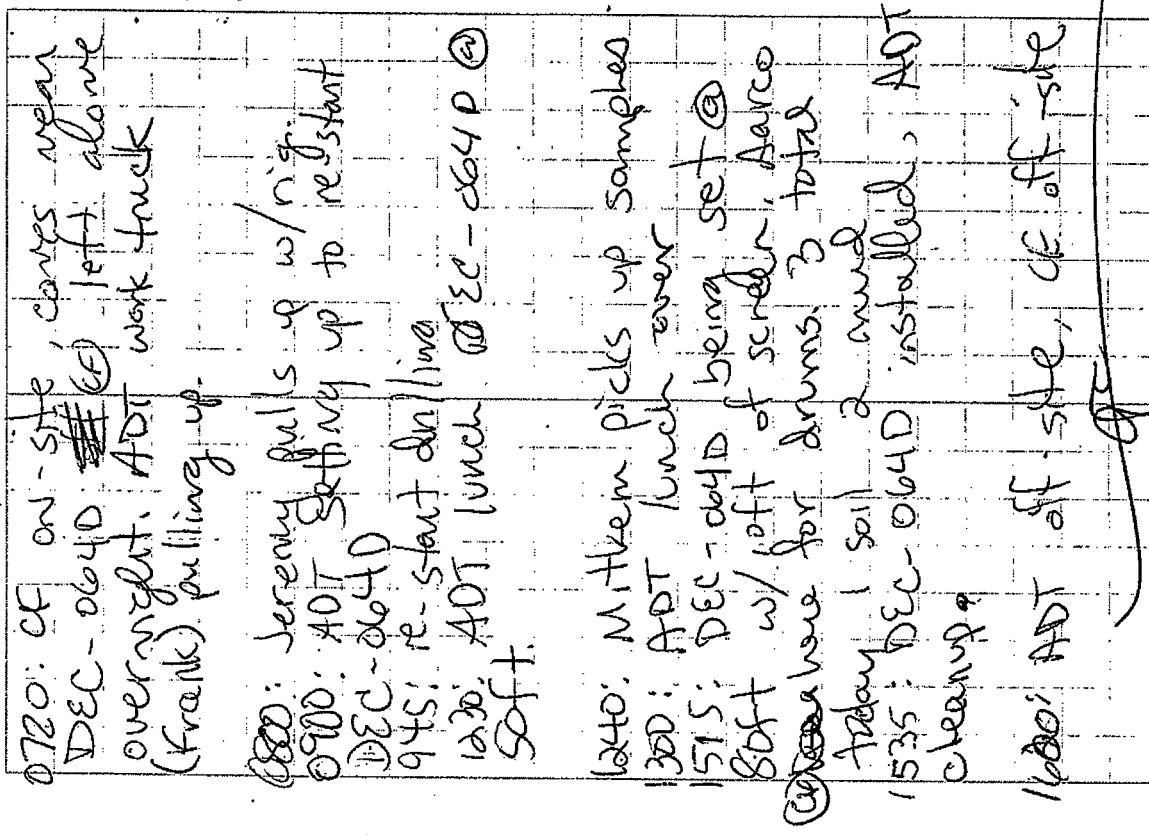 0720: CF on-site, cones near
DEC-064D (CF) left alone
overnight. ADT work truck
(Frank) pulling up.
0800: Jeremy pulls up w/ rig.
0900: ADT setting up to restart
DEC-064D
945: re-start drilling
1230: ADT lunch DEC-064D @
50ft.
1240: Mitkem picks up samples
1300: ADT lunch over
1515: DEC-064D being set @
80ft w/ 10ft of screen. Aarco
(CF) here for drums. 3 total
today 1 soil 2 mud
1535: DEC-064D installed, ADT
cleanup.
1600: ADT off-site, CF off-site